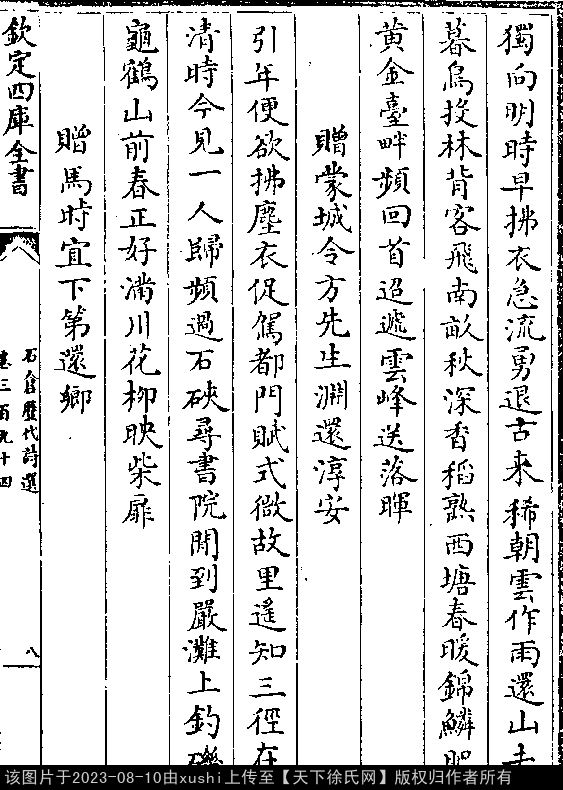 獨向明時早拂衣急流勇退古來稀朝雲作雨還山
暮鳥投林背客飛南畝秋深香稻熟西塘春暖錦鱗肥
黄金臺畔頻回首迢遞雲峰送落暉
贈蒙城令方先生淵還淳安
引年便欲拂塵衣促駕都門賦式微故里遙知三徑在
清時今見一人歸頻過石硤尋書院閒到嚴灘上釣磯
龜鶴山前春正好滿川花柳映柴扉
贈馬時宜下第還鄉
欽定四庫全書
石倉歷代詩選
卷三百九十四
八
该图片于2023-08-10由xushi上传至【天下徐氏网】版权归作者所有